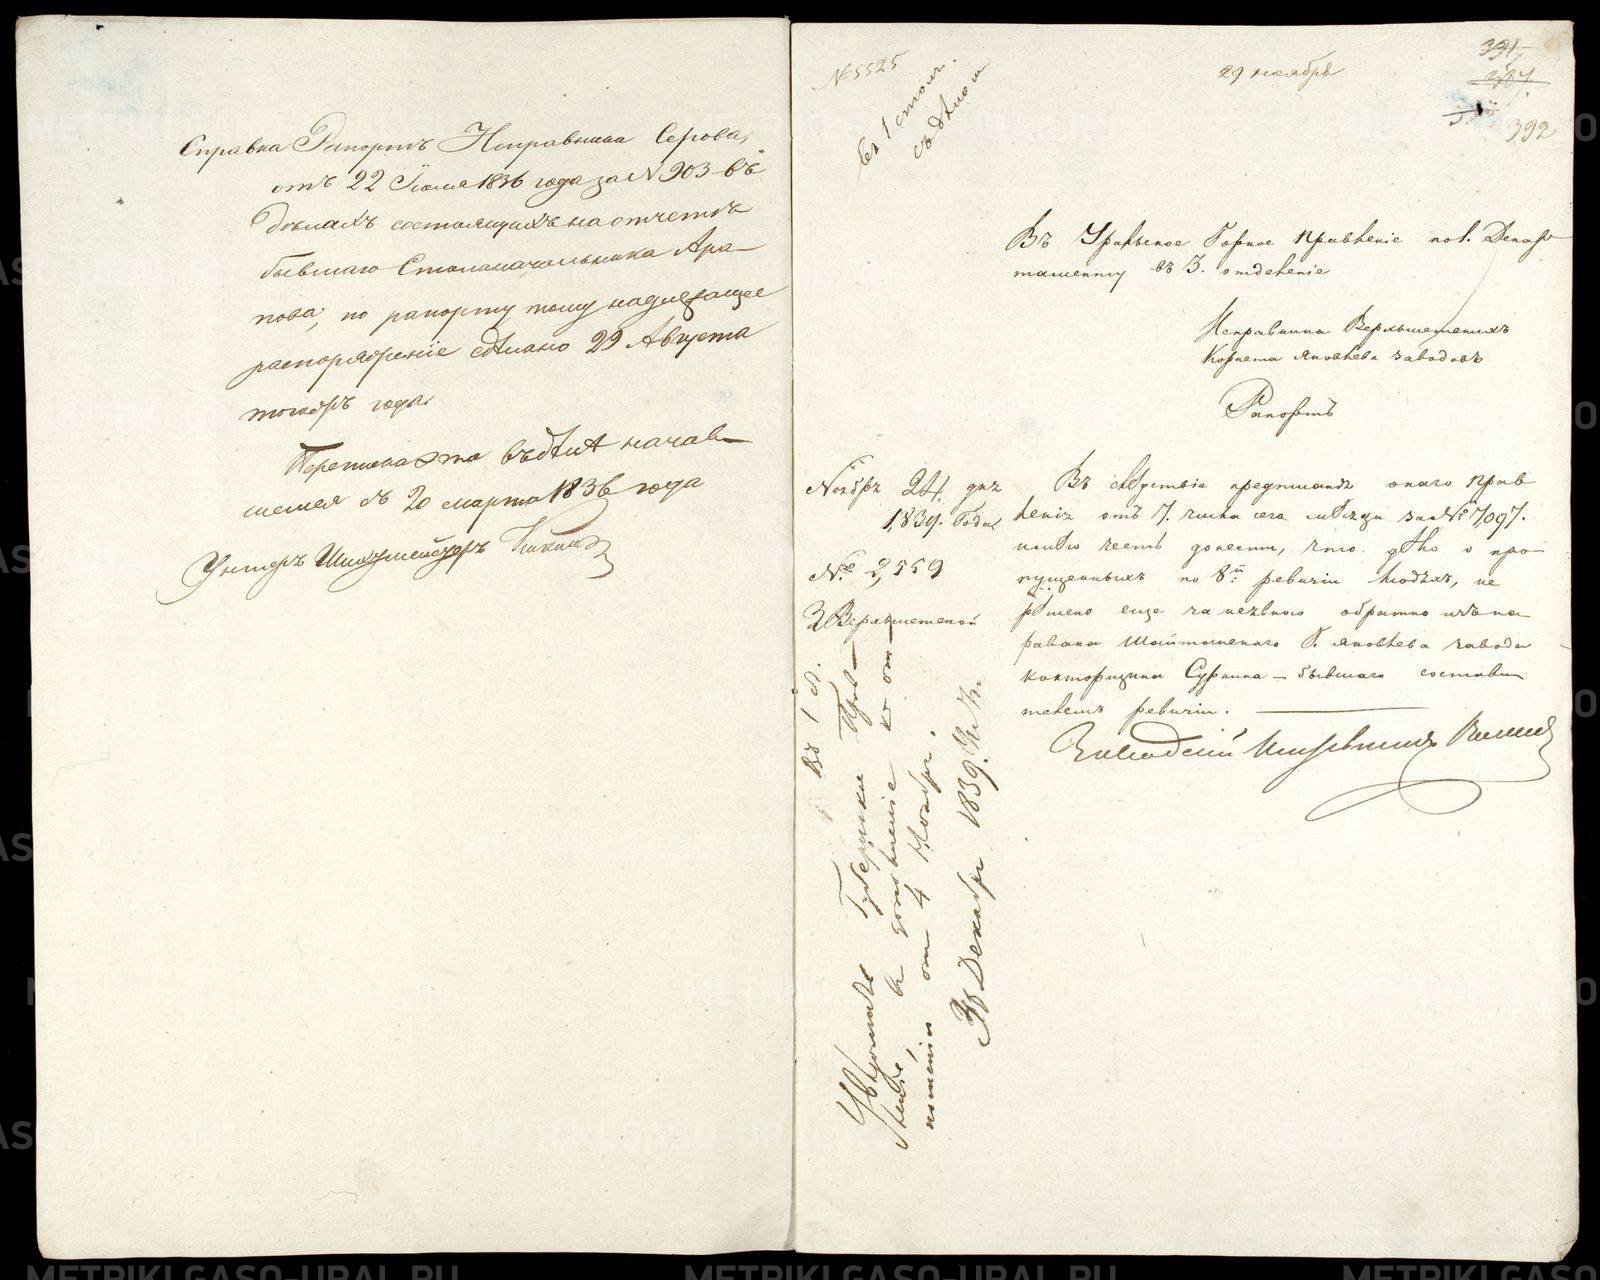 Справка Рапортъ Исправника Серова,
отъ 22 Іюля 1836 года за № 903 въ
дѣлахъ состоящихъ на отчетѣ
бывшаго Столоначальника Ара-
пова; по рапорту тому надлежащее
распоряженіе сдѣлано 29 Августа
тогожъ года.
Переписка эта въ дѣлѣ начав-
шемся съ 20 марта 1836 года
Унтеръ Шихтмейстеръ
№ 5525
въ 1 столъ.
съ дѣлом
29 ноября
391
387.
392
Въ Уральское Горное Правленіе по 1. Депар-
таменту въ 3. отдѣленіе
Исправника Верхъисетскихъ
Корнета Яковлева заводовъ
Рапортъ
Ноября 24. дня
1839. Года
№ 2,559
З. Верхъисетской
Въ слѣдствіе предписанія онаго Прав
ленія отъ 7. числа сего мѣсяца за № 7097.
имѣю честь донести, что дѣло о про-
пущенныхъ по 8й ревизіи людяхъ, не
рѣшено еще за неявкою обратно изъ ка
равана Шайтанскаго Г. Яковлева завода
конторщика Сурнина – бывшаго состави
телемъ ревизіи.
Заводскій Исправникъ
Въ 1 д.
Увѣдомить Губернское Прав-
леніе, въ дополненіе къ от-
ношенію от 4 Ноября.
Декабря 1839.
METRIKI.GASO-URAL.RU
METRIKI.GASO-URAL.RU